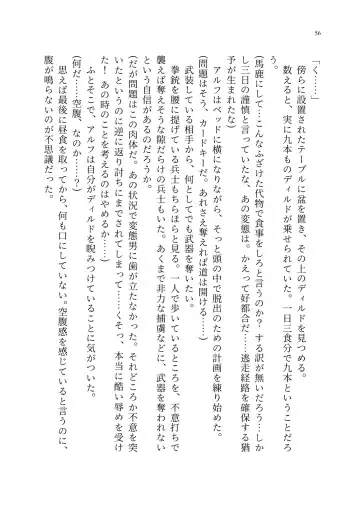 56
「く……」
　傍らに設置されたテーブルに盆を置き、その上のディルドを見つめる。
　数えると、実に九本ものディルドが乗せられていた。一日三食分で九本ということだろ
う。
（馬鹿にして…こんなふざけた代物で食事をしろと言うのか？する訳が無いだろう…しか
し三日の謹慎と言っていたな、あの変態は。かえって好都合だ……逃走経路を確保する猶
予が生まれたな）
　アルフはベッドに横になりながら、そっと頭の中で脱出のための計画を練り始めた。
（問題はそう、カードキーだ。あれさえ奪えれば道は開ける……）
　武装している相手から、何としてでも武器を奪いたい。
　拳銃を腰に提げている兵士もちらほらと見る。一人で歩いているところを、不意打ちで
襲えば奪えそうな隙だらけの兵士もいた。あくまで非力な捕虜などに、武器を奪われない
という自信があるのだろうか。
（だが問題はこの肉体だ。あの状況で変態男に歯が立たなかった。それどころか不意を突
いたというのに逆に返り討ちにまでされてしまって……くそっ、本当に酷い辱めを受け
た！あの時のことを考えるのはやめるか……）
　ふとそこで、アルフは自分がディルドを睨みつけていることに気がついた。
（何だ……空腹、なのか……？）
　思えば最後に昼食を取ってから、何も口にしていない。空腹感を感じていると言うのに、
腹が鳴らないのが不思議だった。